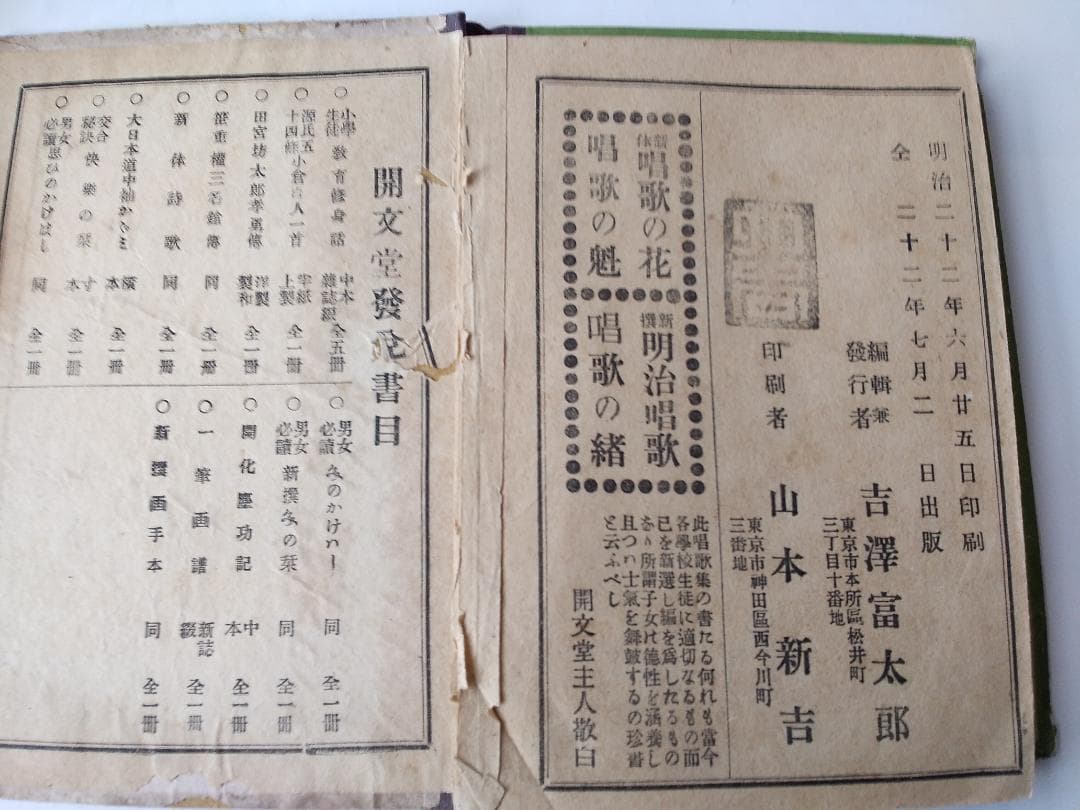 明治二十二年六月廿五日印刷
全 二十二年七月二 日出版
編輯兼
發行者
吉澤富太郎
東京市本所區松井町
三丁目十番地
印刷者
山本新吉
東京市神田區西今川町
三番地
新体 唱歌の花
新撰 明治唱歌
唱歌の魁
唱歌の緒
此唱歌集の書たる何れも當今
各學校生徒に適切なるもの而
已を新選し編を爲したるもの
あり所謂子女は德性を涵養し
且つハ士氣を舞鼓するの珍書
と云ふべし
開文堂主人敬白
開文堂發兌書目
○小學生徒 敎育修身話 中本雜誌綴 全五冊
○源氏五十四條 小倉百人一首 半紙上製 全一冊
○田宮坊太郎孝勇傳 洋製和製 全一冊
○笹重權三名鎗傳 同 全一冊
○新体詩歌 同 全一冊
○大日本道中袖かゞミ 橫本 全一冊
○交合秘訣 快樂の栞 寸本 全一冊
○男女必讀 思ひのかけはし 同 全一冊
○男女必讀 ふみのかけハし 同 全一冊
○男女必讀 新撰ふみの栞 同 全一冊
○開化塵功記 中本 全一冊
○一筆画譜 新誌綴 全一冊
○新撰画手本 同 全一冊